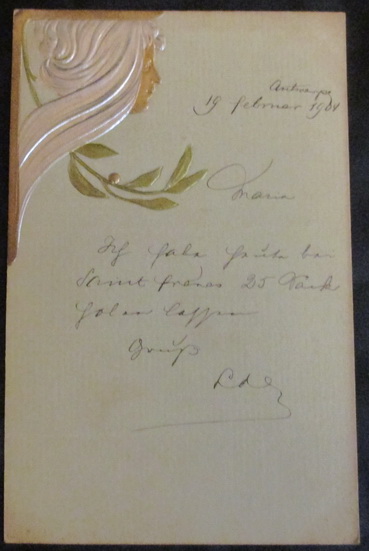 Antwerpen
19 februar 1901
Mama
Ich habe heute bei
Saint frères 25 Sack
holen lassen
Gruß